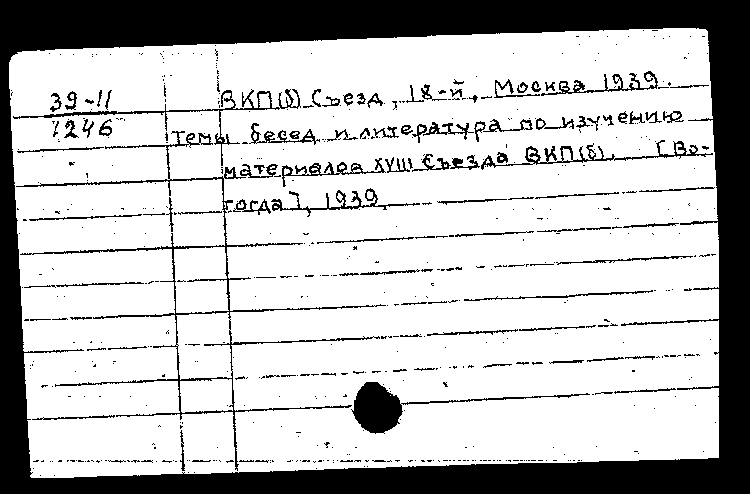 39-11
1246
ВКП(б) Съезд, 18-й, Москва 1939.
Темы бесед и литература по изучению
материалов XVIII Съезда ВКП(б). [Во-
логда], 1939.